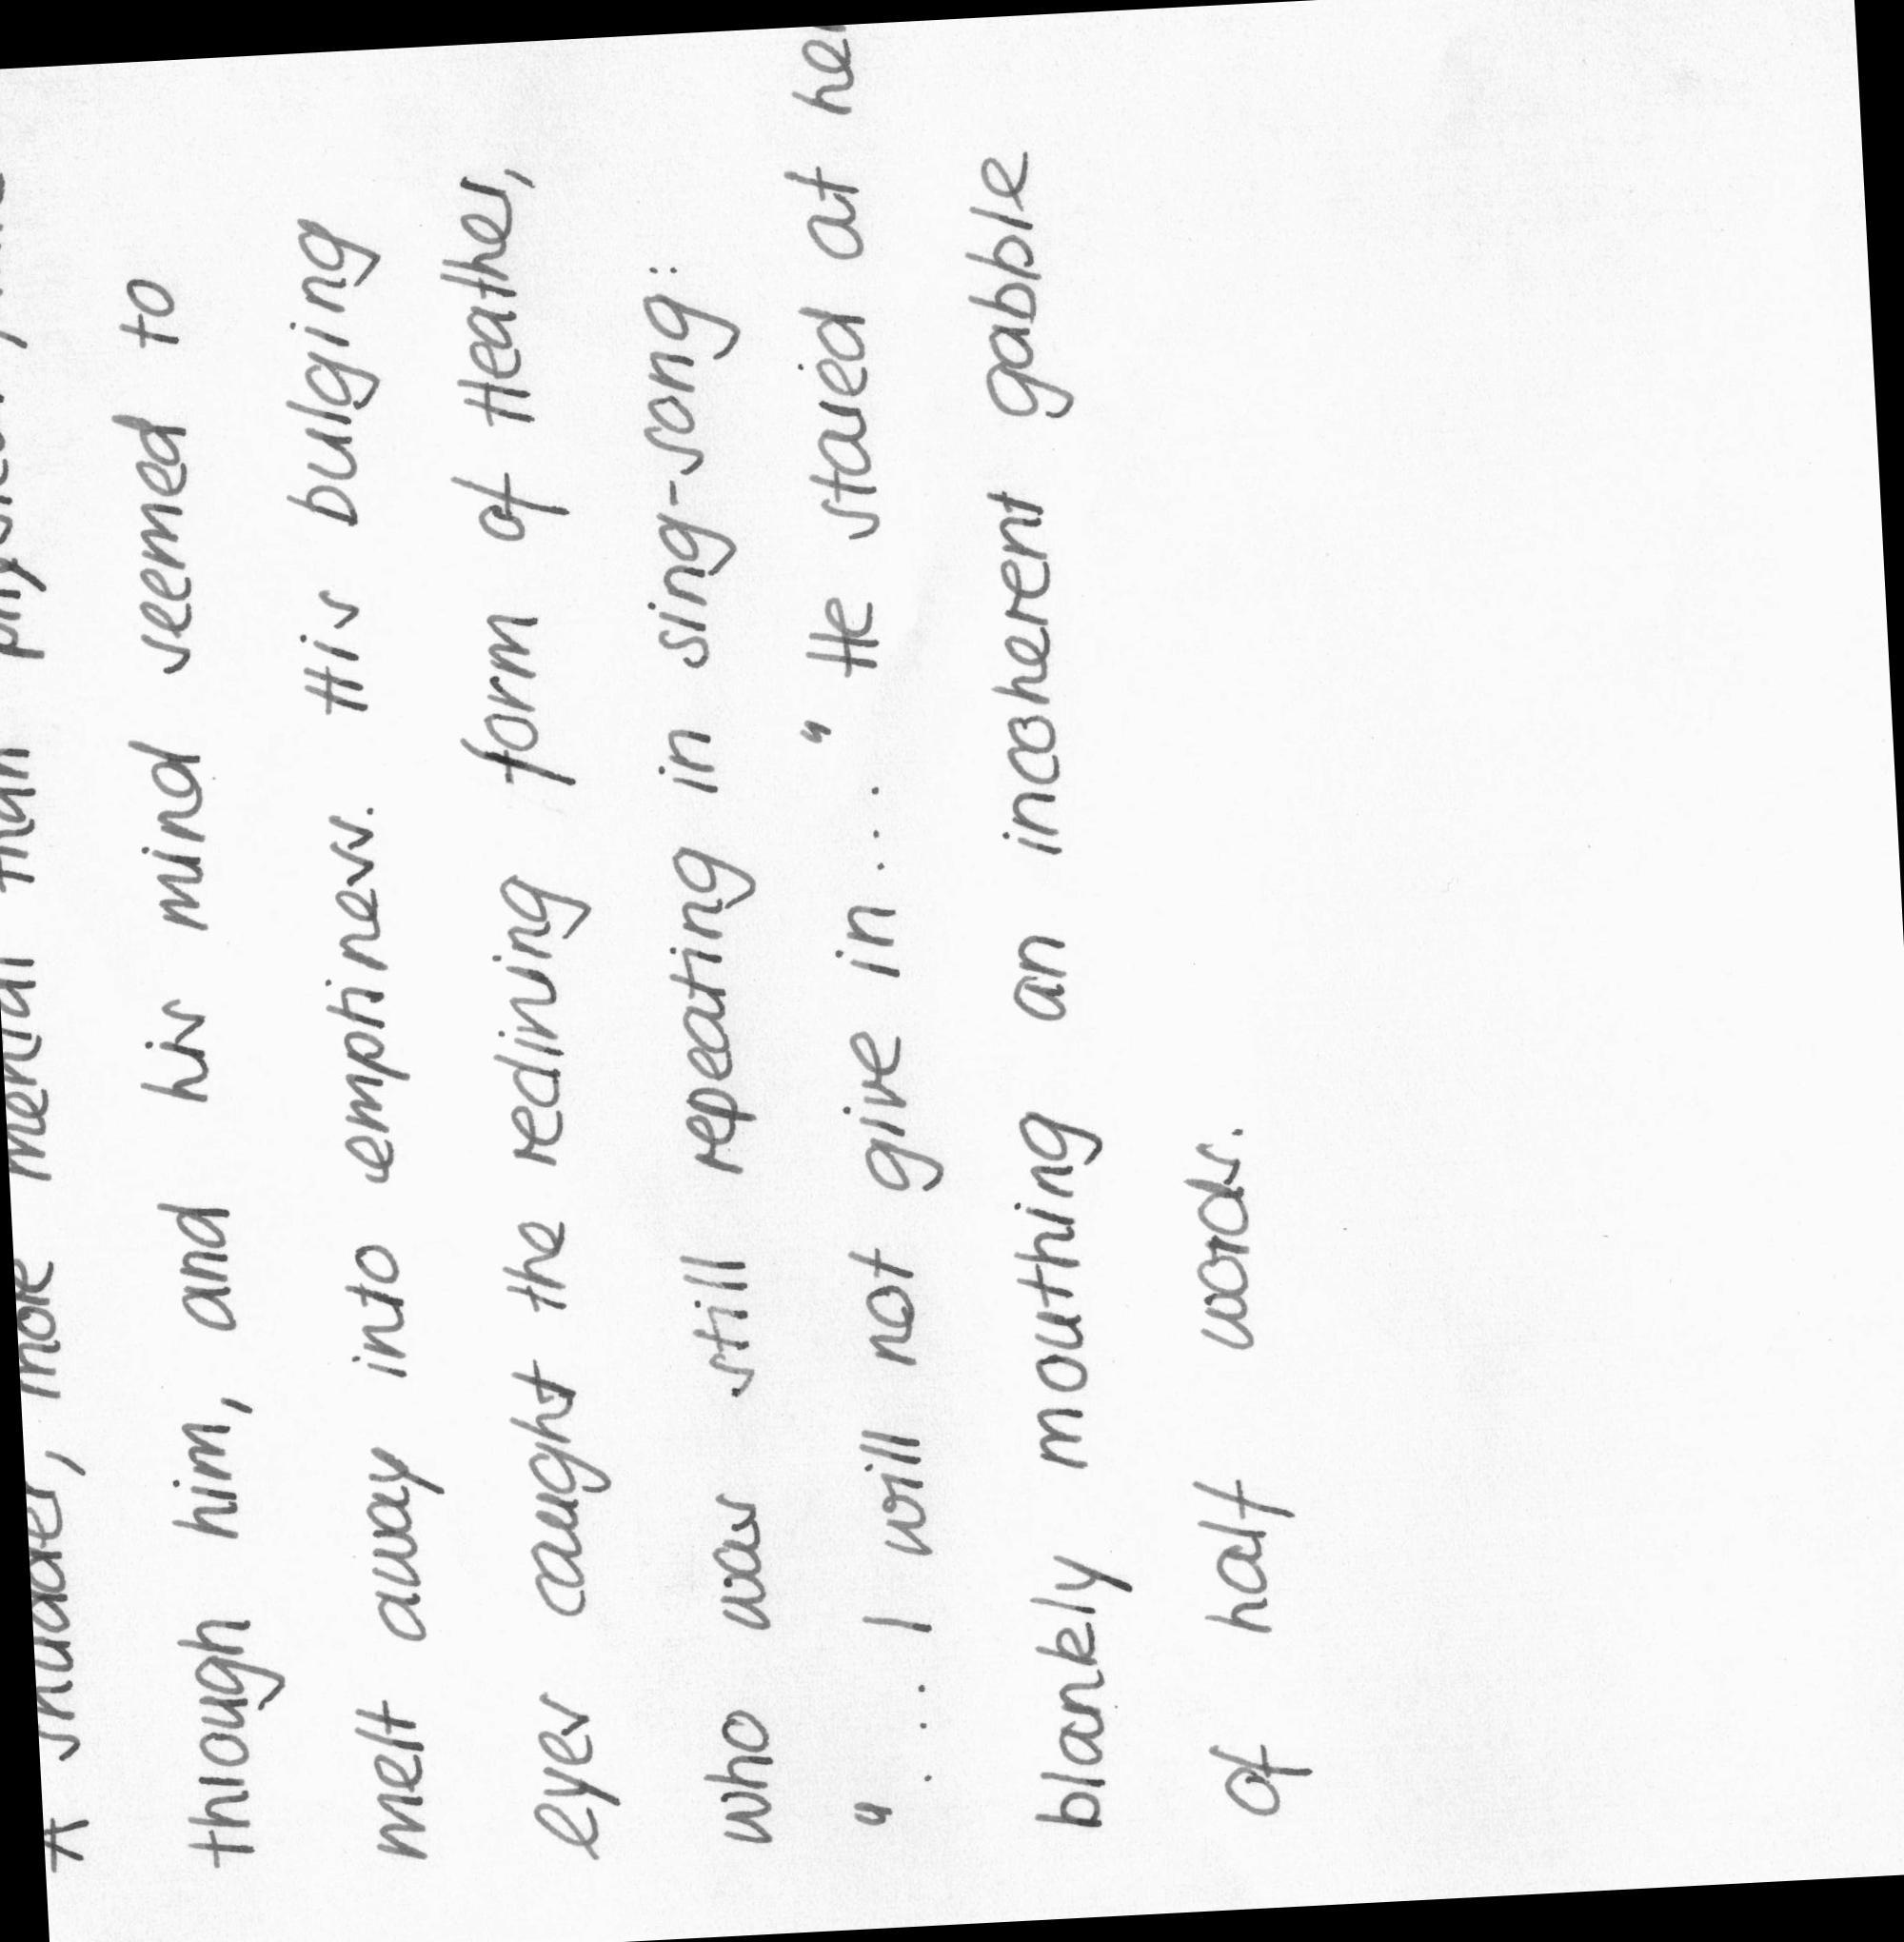 A shudder, more mental than
through him, and his mind seemed to
melt away into emptiness. His bulging
eyes caught the reclining form of Heather,
who was still repeating in sing-song:
"... I will not give in... " He stared at her
blankly mouthing an incoherent gabble
of half words.